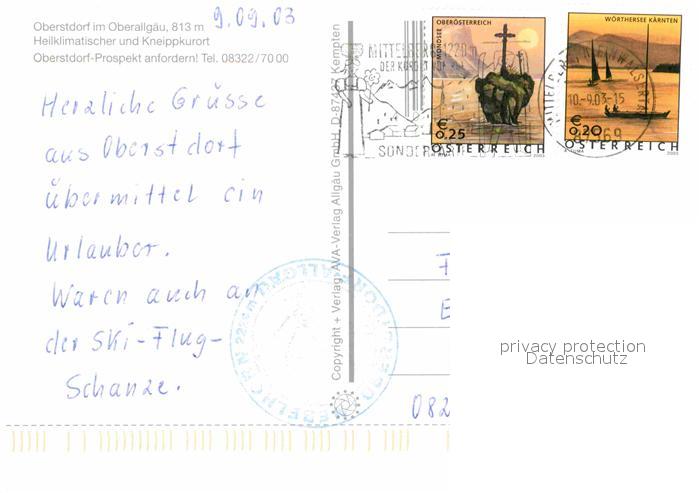 Oberstdorf im Oberallgäu, 813 m
Heilklimatischer und Kneippkurort
Oberstdorf-Prospekt anfordern! Tel. 08322/70 00
9.09.03
Herzliche Grüsse
aus Oberstdorf
übermittel ein
Urlauber.
Waren auch an
der Ski-Flug-
Schanze.
Copyright + Verlag AVA-Verlag Allgäu GmbH, D-87437 Kempten
MITTELBERG 1220 m
DER KURORT
SONDER
OBERÖSTERREICH
MONDSEE
€ 0,25
ÖSTERREICH
2003
WÖRTHERSEE KÄRNTEN
€ 0,20
ÖSTERREICH
2003
10.-9.03-15
082
privacy protection
Datenschutz